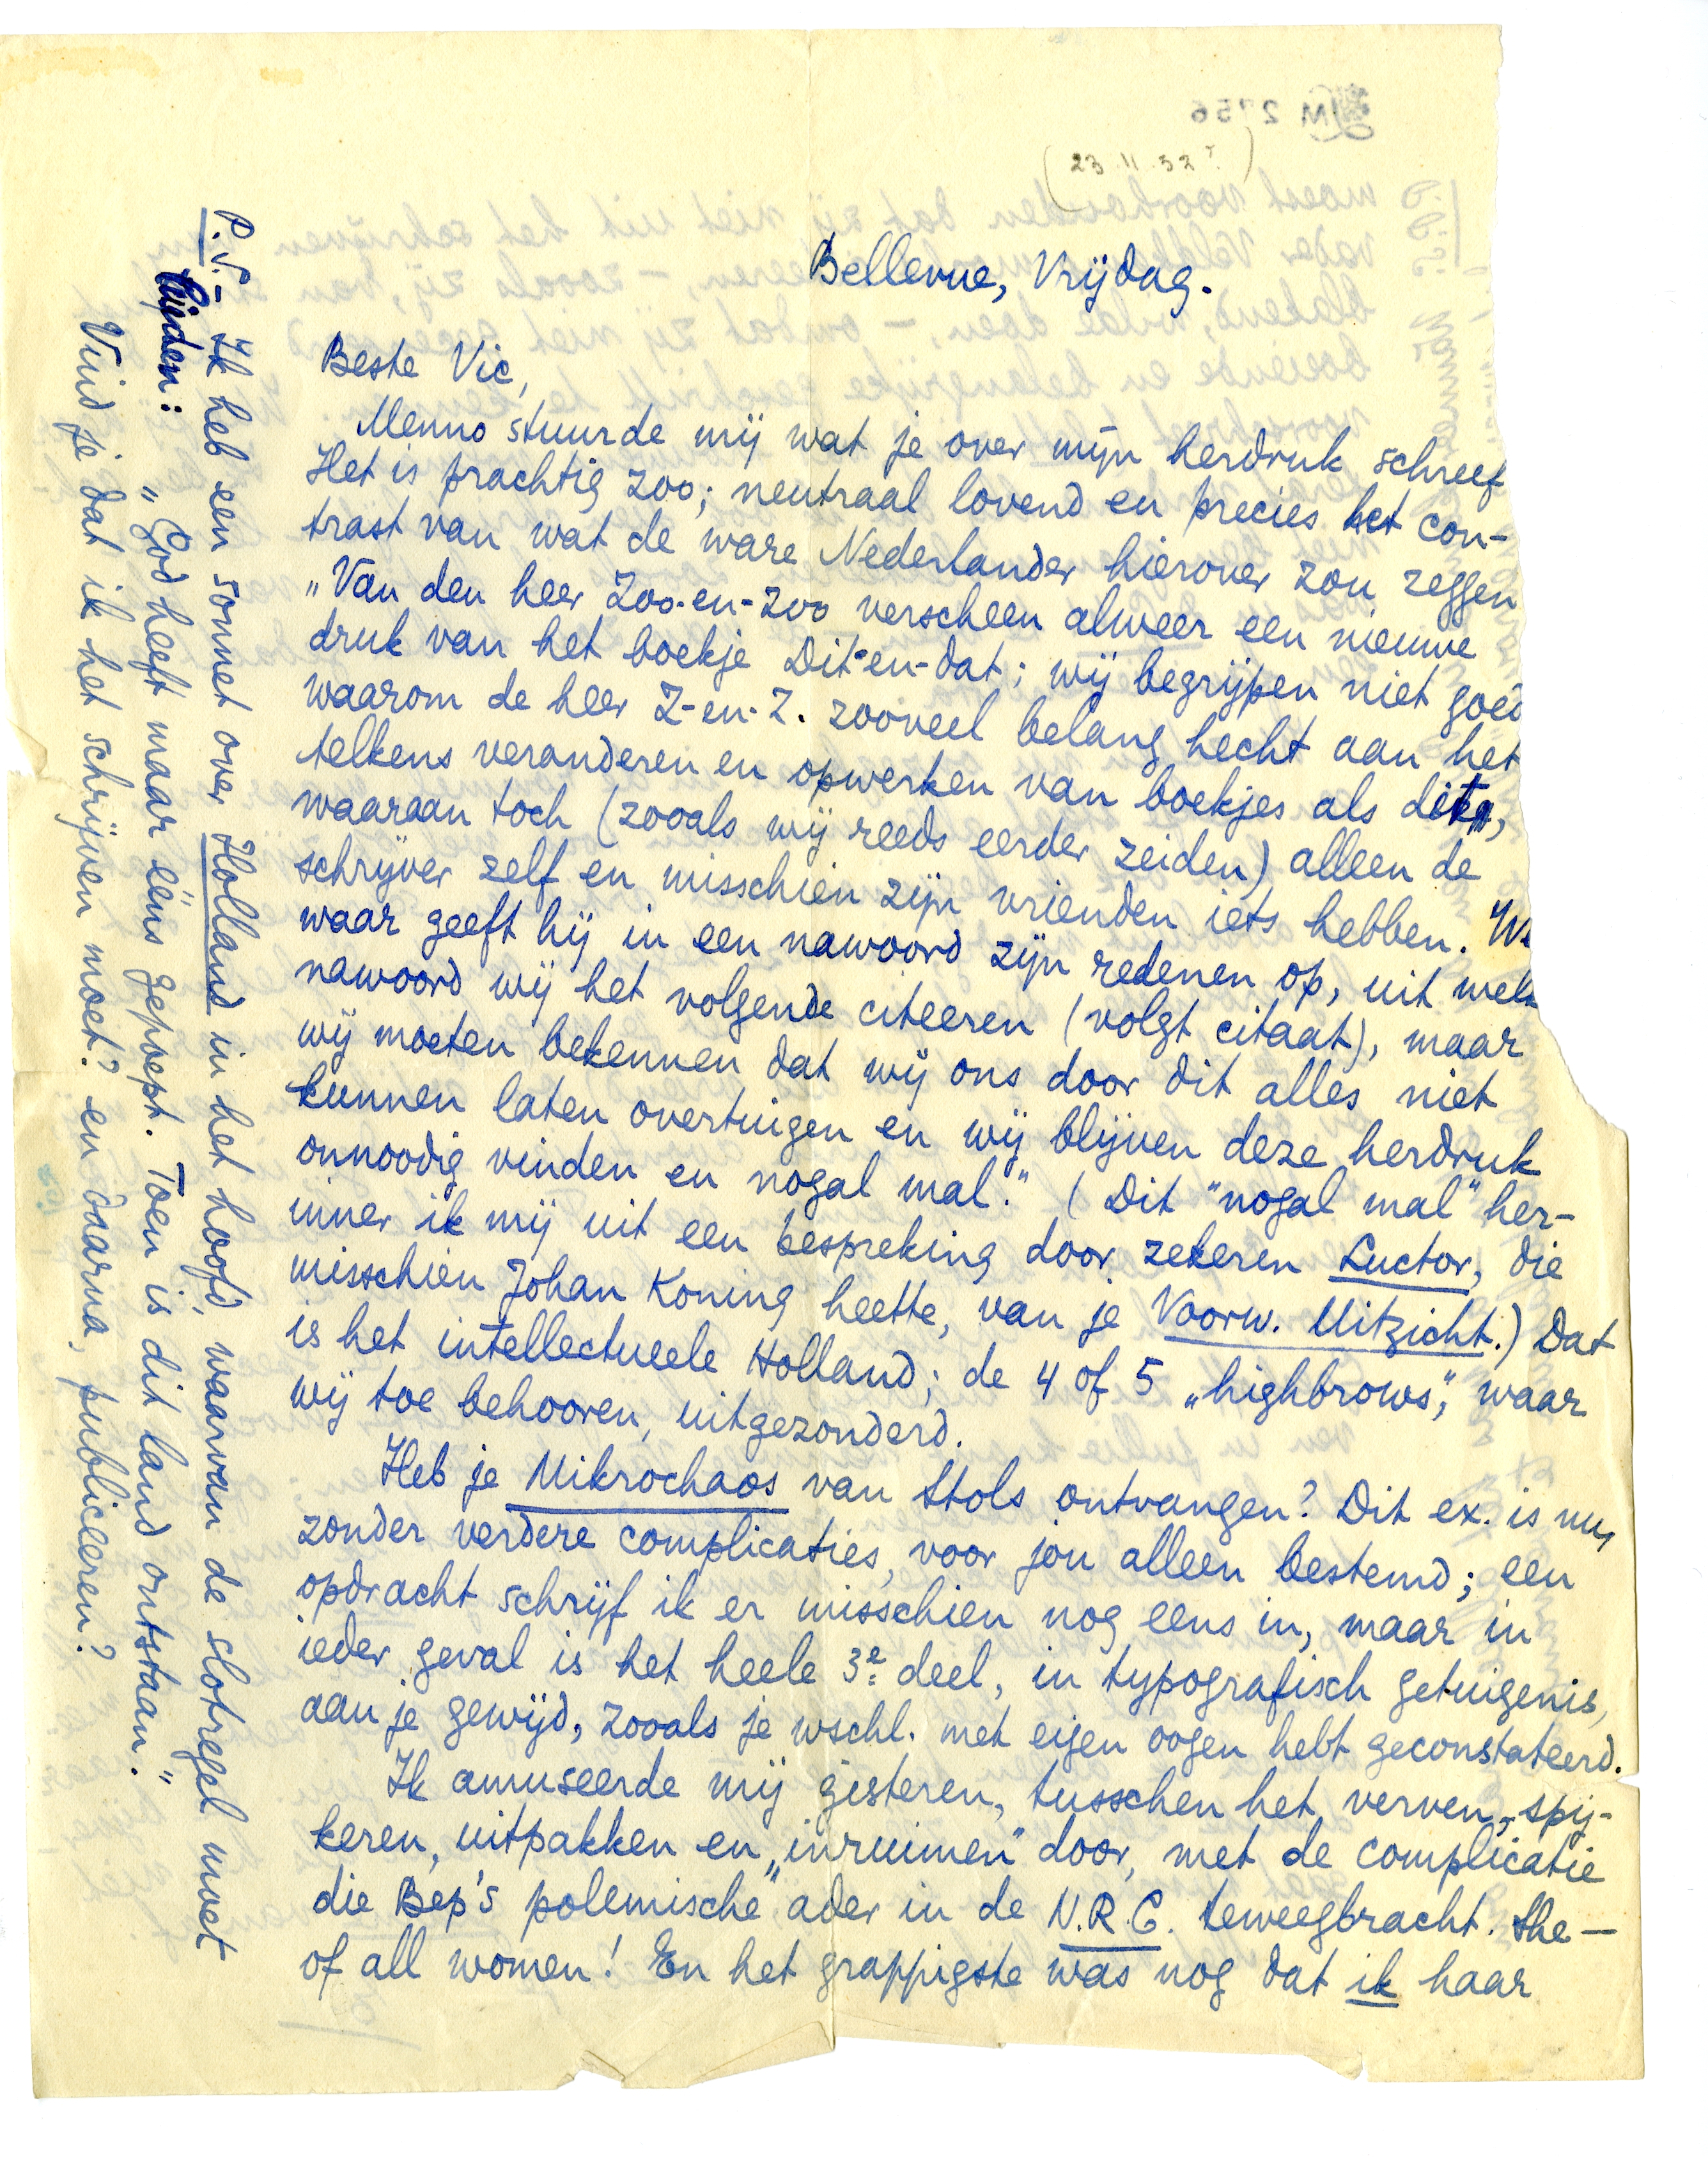 (23 11 32?)
Bellevue, Vrijdag.
Beste Vic,
Menno stuurde mij wat je over mijn herdruk schreef
Het is prachtig zoo; neutraal lovend en precies het con-
trast van wat de ware Nederlander hierover zou zeggen
„Van den heer Zoo-en-zoo verscheen alweer een nieuwe
druk van het boekje Dit-en-dat; wij begrijpen niet goed
waarom de heer Z-en-Z. zooveel belang hecht aan het
telkens veranderen en opwerken van boekjes als dit,
waaraan toch (zooals wij reeds eerder zeiden) alleen de
schrijver zelf en misschien zijn vrienden iets hebben.
waar geeft hij in een nawoord zijn redenen op, uit welk
nawoord wij het volgende citeeren (volgt citaat), maar
wij moeten bekennen dat wij ons door dit alles niet
kunnen laten overtuigen en wij blijven deze herdruk
onnoodig vinden en nogal mal." (Dit "nogal mal" her-
inner ik mij uit een bespreking door zekeren Luctor, die
misschien Johan Koning heette, van je Voorw. Uitzicht.) Dat
is het intellectueele Holland; de 4 of 5 „highbrows", waar
wij toe behooren, uitgezonderd.
Heb je Mikrochaos van Stols ontvangen? Dit ex. is nu,
zonder verdere complicaties, voor jou alleen bestemd; een
opdracht schrijf ik er misschien nog eens in, maar in
ieder geval is het heele 3e deel, in typografisch getuigenis,
aan je gewijd, zooals je wschl. met eigen oogen hebt geconstateerd.
Ik amuseerde mij gisteren, tusschen het verven, spij-
keren, uitpakken en „inruimen" door, met de complicatie
die Bep's polemische ader in de N.R.C. teweegbracht. She —
of all women! En het grappigste was nog dat ik haar
P.S. – Ik heb een sonnet over Holland in het hoofd, waarvan de slotregel moet
luiden:
„God heeft maar eéns gepoept. Toen is dit land ontstaan."
Vind je dat ik het schrijven moet? en daarna, publiceeren?
LM 2756